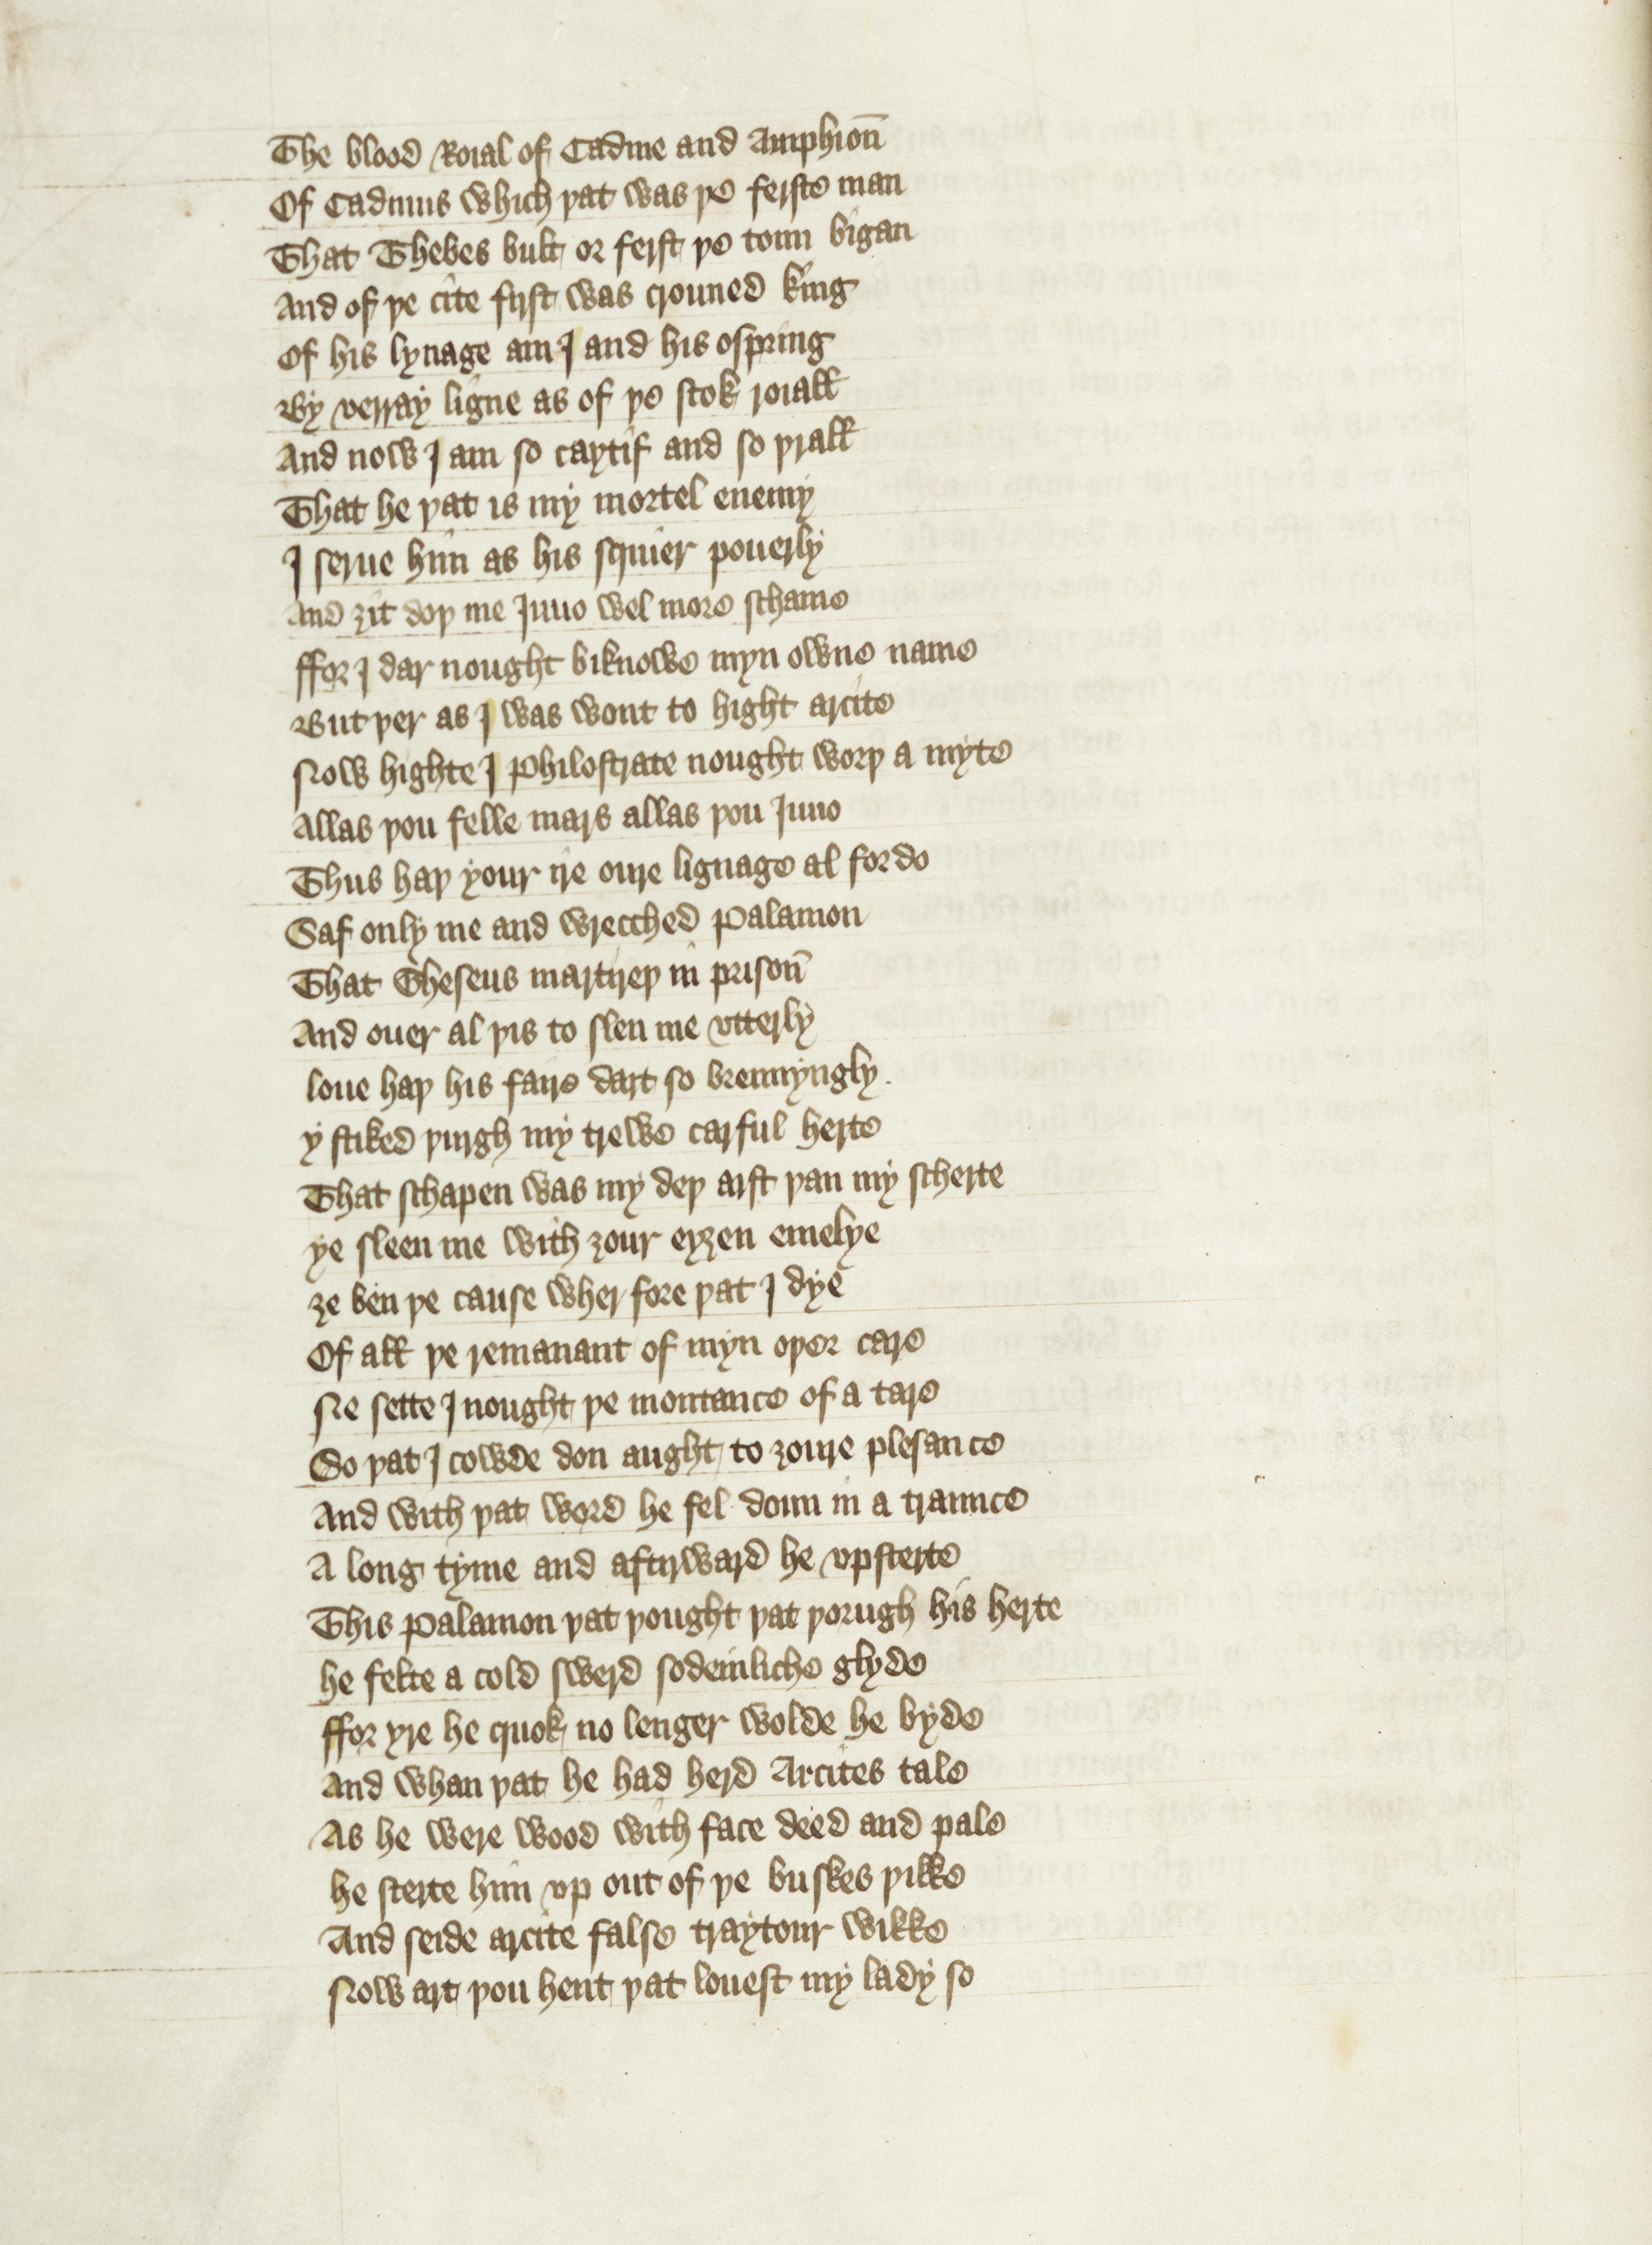 The blood Roial of Cadme and Amphion̄
Of Cadmus which þat was þe ferste man
That Thebes bult or ferst þe toun bigan
And of þe cite fyrst was crouned king
Of his lynage am I and his ospring
By verray ligne as of þe stok roiall
And now I am so caytif and so þrall
That he þat is my mortel enemy
I serue him as his squier pouerly
And ȝit doþ me Juno wel more schame
ffor I dar nought biknowe myn owne name
But þer as I was wont to hight arcite
Now highte I Philostrate nought worþ a myte
Allas þou felle mars allas þou Juno
Thus haþ your ire oure lignage al fordo
Saf only me and wrecched Palamon
That Theseus martireþ in prison̄
And ouer al þis to slen me vtterly
loue haþ his faire dart so brennyngly.
y stiked þurgh my trewe carful herte
That schapen was my deþ arst þan my scherte
ye sleen me with ȝour eyȝen emelye
ȝe ben þe cause wher fore þat I dye
Of all þe remanant of myn oþer care
Ne sette I nought þe montance of a tare
So þat I cowde don aught to ȝoure plesance
And with þat word he fel doun in a traunce
A long tyme and aftirward he vpsterte
This Palamon þat þought þat þorugh his herte
he felte a cold swerd sodeinliche glyde
ffor yre he quok no lenger wolde he byde
And whan þat he had herd Arcites tale
As he were wood with face deed and pale
he sterte him vp out of þe buskes þikke
And seide arcite false traytour wikke
Now art þou hent þat louest my lady so